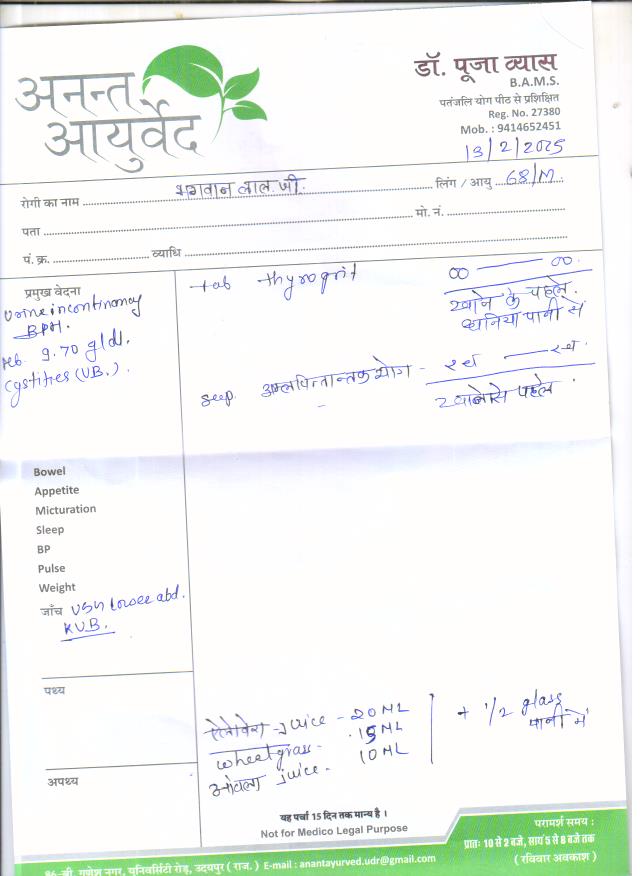 अनन्त
आयुर्वेद
डॉ. पूजा व्यास
B.A.M.S.
पतंजलि योग पीठ से प्रशिक्षित
Reg. No. 27380
Mob. : 9414652451
13/2/2025
रोगी का नाम भगवान लाल जी. लिंग / आयु 68/M
पता मो. नं.
पं. क्र. व्याधि
प्रमुख वेदना
Urine incontinency
BPH.
Hb 9.70 g/dl.
Cystities (UB.).
tab thyrogrit 00 — 00
खाने के पहले.
धनिया पानी से
अम्लपित्तान्तक योग - २च — २च.
खाने से पहले.
Bowel
Appetite
Micturation
Sleep
BP
Pulse
Weight
जाँच USG lower abd.
KUB.
पथ्य
ऐलोवेरा juice - 20 ML
wheatgrass - 15 ML
आंवला juice - 10 ML
+ 1/2 glass
पानी में
अपथ्य
यह पर्चा 15 दिन तक मान्य है ।
Not for Medico Legal Purpose
परामर्श समय :
प्रातः 10 से 2 बजे, सायं 5 से 8 बजे तक
(रविवार अवकाश)
गणेश नगर, यूनिवर्सिटी रोड़, उदयपुर ( राज. ) E-mail : anantayurved.udr@gmail.com